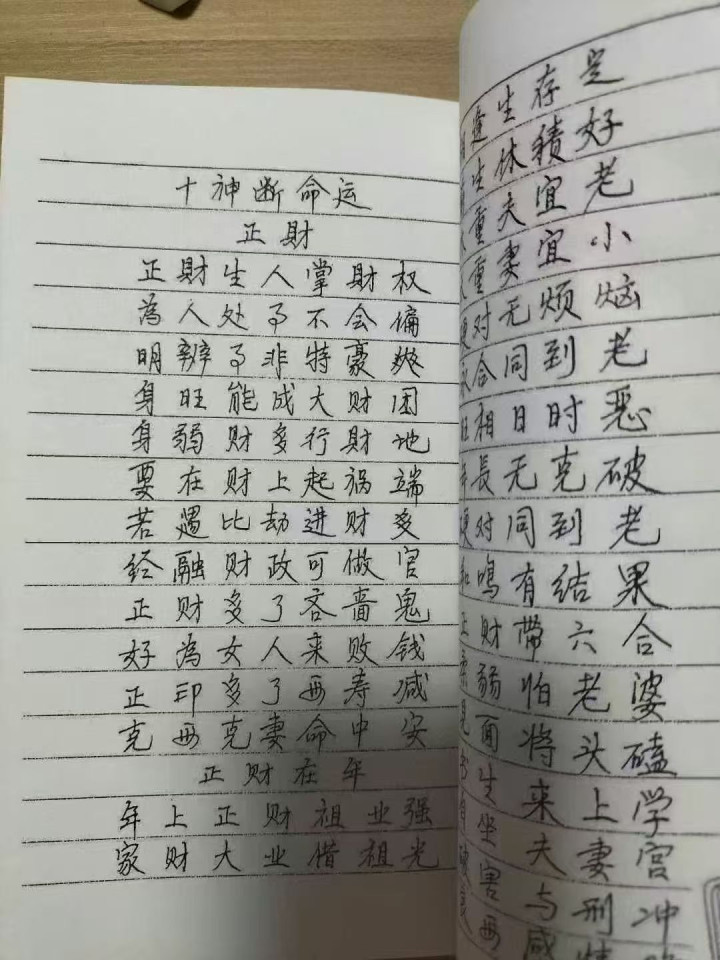 十神断命运
正財
正財生人掌財权
為人处事不会偏
明辨事非特豪爽
身旺能成大财团
身弱财多行財地
要在财上起祸端
若遇比劫进财多
经融财政可做官
正财多了吝啬鬼
好為女人来败钱
正印多了西寿减
克西克妻命中安
正财在年
年上正财祖业强
家财大业借祖光
逢生存足
生休積好
重夫宜老
重妻宜小
对无烦恼
合同到老
相日时恶
長无克破
对同到老
鸣有结果
财带六合
弱怕老婆
面将头磕
生来上学
坐夫妻宫
害与刑冲